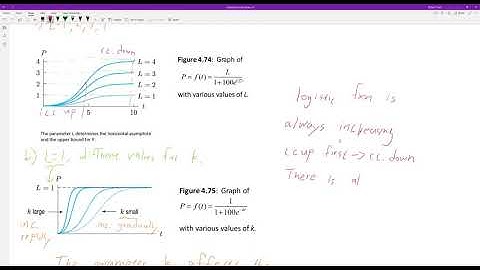 P
cc. down
4
3
2
1
L = 4
L = 3
L = 2
L = 1
5
10
t
cc up
Figure 4.74: Graph of
P = f(t) = L / 1+100e
with various values of L.
The parameter L determines the horizontal asymptote
and the upper bound for P.
b) L=1, d:fferent values for k.
P
L = 1
k large
k small
inc.
rapidly
inc. gradually
t
Figure 4.75: Graph of
P = f(t) = 1 / 1+100e
with various values of k.
The parameter k affects the
logistic fxn is
always increasing
cc up first → cc. down
There is al